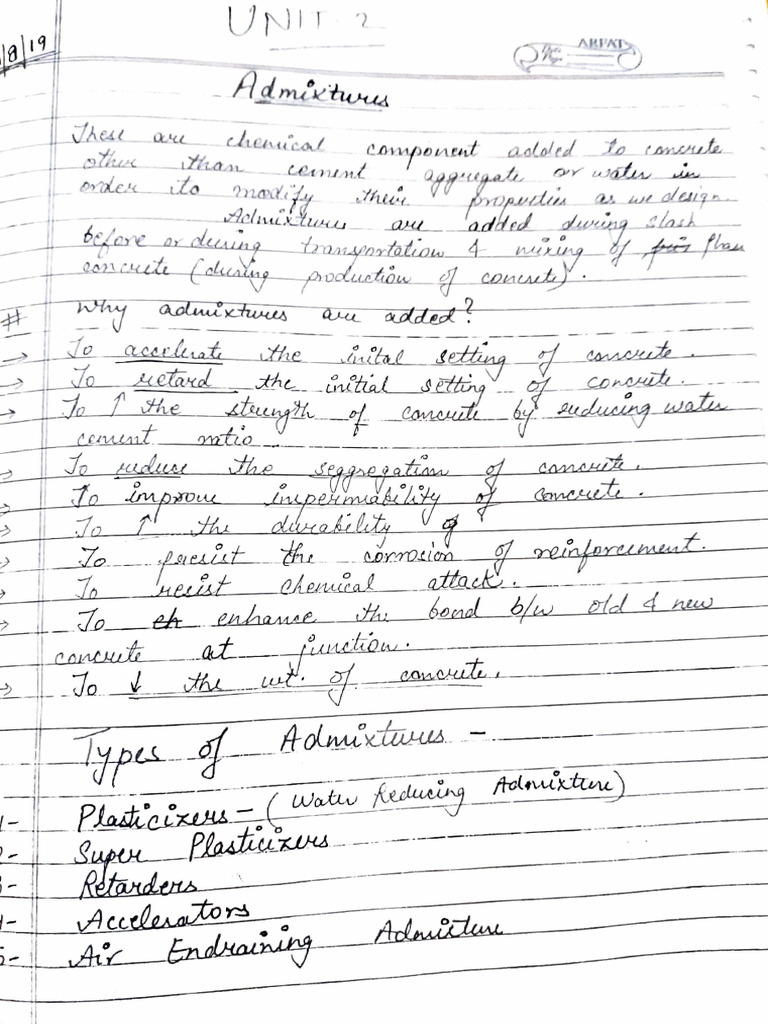 UNIT-2
/8/19
ARFAT
Admixtures
These are chemical component added to concrete
other than cement aggregate or water in
order to modify their properties as we design.
Admixtures are added during slash
before or during transportation & mixing of
concrete (during production of concrete).
# Why admixtures are added?
→ To accelerate the inital setting of concrete.
→ To retard the initial setting of concrete.
→ To ↑ the strength of concrete by reducing water
cement ratio
→ To reduce the seggregation of concrete.
→ To improve impermability of concrete.
→ To ↑ the durability of
→ To resist the corrosion of reinforcement.
→ To resist chemical attack.
→ To enhance the bond b/w old & new
concrete at junction.
→ To ↓ the wt. of concrete.
Types of Admixtures -
1- Plasticizers - (Water Reducing Admixture)
2- Super Plasticizers
3- Retarders
4- Accelerators
5- Air Endraining Admixture